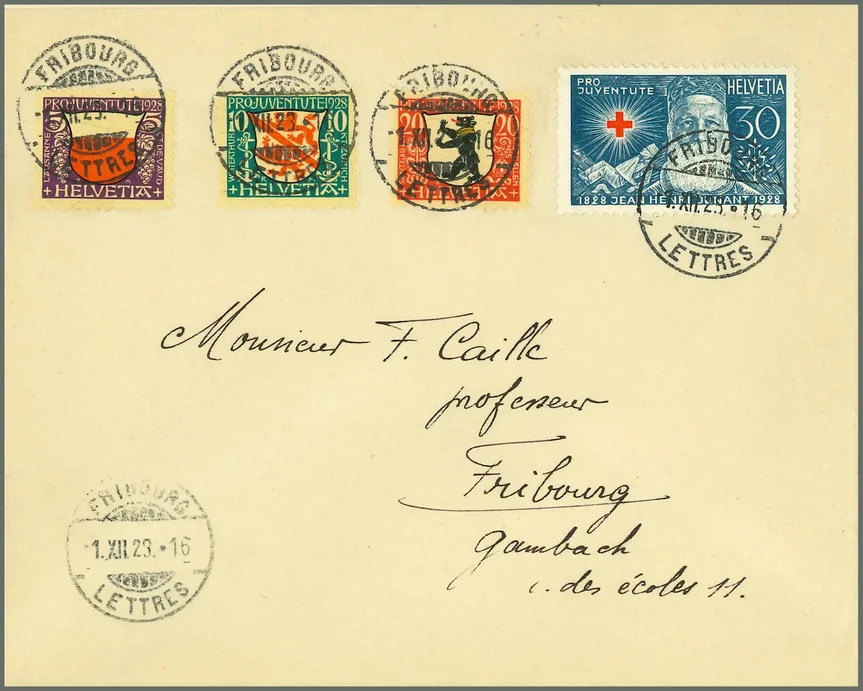 FRIBOURG
LETTRES
PRO JUVENTUTE 1928
LAUSANNE
KT. DE VAUD
+ HELVETIA +
FRIBOURG
LETTRES
PRO JUVENTUTE 1928
10 10
WINTERTHUR
KT. ZÜRICH
+ HELVETIA +
FRIBOURG
-1.XII. 16
LETTRES
20 20
PRO
JUVENTUTE
HELVETIA
30
1828 JEAN HENRI DUNANT 1928
FRIBOURG
1.XII.23.•16
LETTRES
Monsieur F. Caille
professeur
Fribourg
Gambach
des écoles 11.
FRIBOURG
-1.XII.23.•16
LETTRES